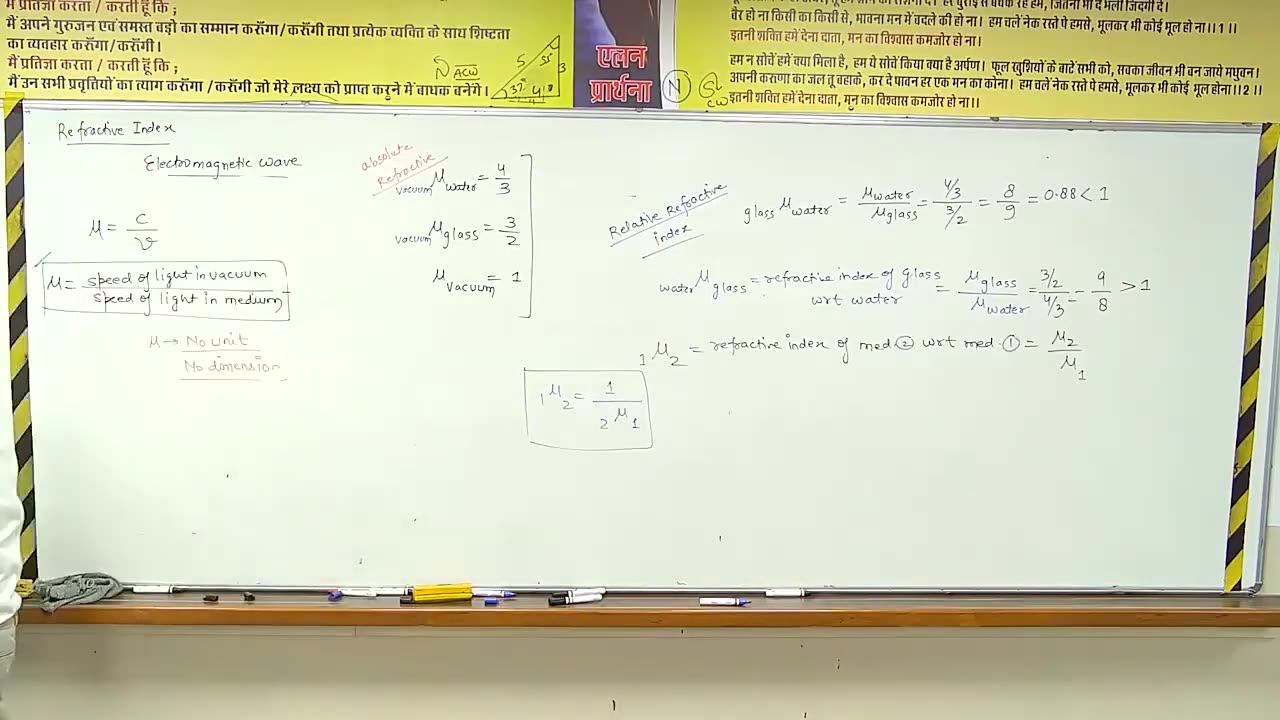 मैं प्रतिज्ञा करता / करती हूँ कि ;
मैं अपने गुरुजन एवं समस्त बड़ों का सम्मान करूँगा / करूँगी तथा प्रत्येक व्यक्ति के साथ शिष्टता
का व्यवहार करूँगा / करूँगी।
मैं प्रतिज्ञा करता / करती हूँ कि ;
मैं उन सभी प्रवृत्तियों का त्याग करूँगा / करूँगी जो मेरे लक्ष्य को प्राप्त करने में बाधक बनेंगे।
N ACW
5 53° 3
37° 4
एलन
प्रार्थना
N
CW
बैर हो ना किसी का किसी से, भावना मन में बदले की हो ना। हम चलें नेक रस्ते पे हमसे, भूलकर भी कोई भूल हो ना।। 1 ।।
इतनी शक्ति हमें देना दाता, मन का विश्वास कमजोर हो ना।
हम न सोचें हमें क्या मिला है, हम ये सोचें किया क्या है अर्पण। फूल खुशियों के बाटें सभी को, सबका जीवन भी बन जाये मधुवन।
अपनी करुणा का जल तू बहाके, कर दे पावन हर एक मन का कोना। हम चलें नेक रस्ते पे हमसे, भूलकर भी कोई भूल होना।। 2 ।।
इतनी शक्ति हमें देना दाता, मन का विश्वास कमजोर हो ना।।
Refractive Index
Electromagnetic wave
μ = c/v
μ = speed of light in vacuum / speed of light in medium
μ → No unit
No dimension
absolute
Refractive
vacuum μ water = 4/3
vacuum μ glass = 3/2
μ vacuum = 1
Relative Refractive
index
glass μ water = μ water / μ glass = 4/3 / 3/2 = 8/9 = 0.88 < 1
water μ glass = refractive index of glass wrt water = μ glass / μ water = 3/2 / 4/3 = 9/8 > 1
1 μ 2 = refractive index of med ② wrt med ① = μ2 / μ1
1 μ 2 = 1 / 2 μ 1